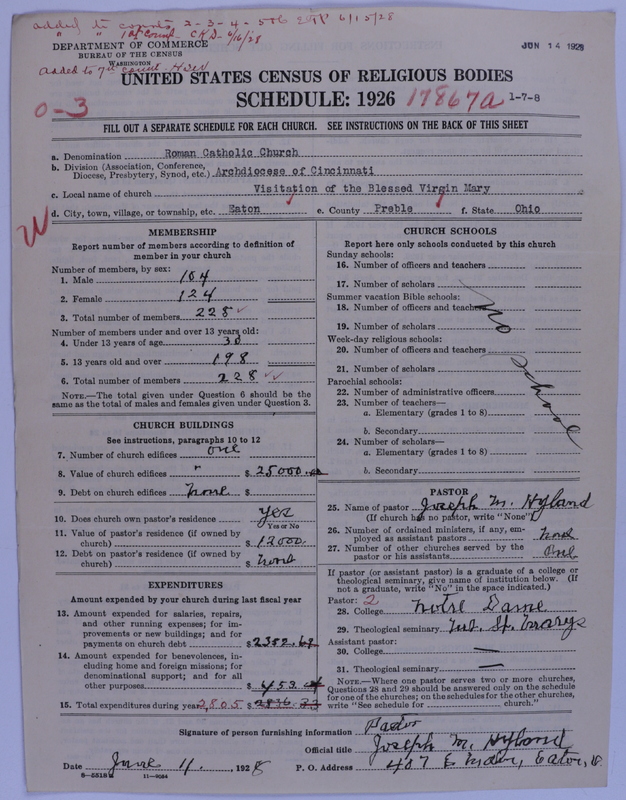 added to county 2-3-4-5+6 EHP 6/15/28
" " 1st Count CKD 6/16/28
DEPARTMENT OF COMMERCE
BUREAU OF THE CENSUS
WASHINGTON
JUN 14 1928
Added to 7th count
UNITED STATES CENSUS OF RELIGIOUS BODIES
SCHEDULE: 1926 17867a 1-7-8
0-3
FILL OUT A SEPARATE SCHEDULE FOR EACH CHURCH. SEE INSTRUCTIONS ON THE BACK OF THIS SHEET
a. Denomination Roman Catholic Church
b. Division (Association, Conference,
Diocese, Presbytery, Synod, etc.) Archdiocese of Cincinnati
c. Local name of church Visitation of the Blessed Virgin Mary
d. City, town, village, or township, etc. Eaton e. County Preble f. State Ohio
W
MEMBERSHIP
Report number of members according to definition of
member in your church
Number of members, by sex:
1. Male 104
2. Female 124
3. Total number of members 228
Number of members under and over 13 years old:
4. Under 13 years of age 30
5. 13 years old and over 198
6. Total number of members 228
NOTE.—The total given under Question 6 should be the
same as the total of males and females given under Question 3.
CHURCH BUILDINGS
See instructions, paragraphs 10 to 12
7. Number of church edifices one
8. Value of church edifices " $ 25000.00
9. Debt on church edifices None $
10. Does church own pastor's residence Yes
Yes or No
11. Value of pastor's residence (if owned by
church) $ 12000.
12. Debt on pastor's residence (if owned by
church) $ none
EXPENDITURES
Amount expended by your church during last fiscal year
13. Amount expended for salaries, repairs,
and other running expenses; for im-
provements or new buildings; and for
payments on church debt $ 2352.
14. Amount expended for benevolences, in-
cluding home and foreign missions; for
denominational support; and for all
other purposes $ 453.
15. Total expenditures during year 2,805 $
CHURCH SCHOOLS
Report here only schools conducted by this church
Sunday schools:
16. Number of officers and teachers
17. Number of scholars
Summer vacation Bible schools:
18. Number of officers and teachers
19. Number of scholars
Week-day religious schools:
20. Number of officers and teachers
21. Number of scholars
Parochial schools:
22. Number of administrative officers
23. Number of teachers—
a. Elementary (grades 1 to 8)
b. Secondary
24. Number of scholars—
a. Elementary (grades 1 to 8)
b. Secondary
no school
PASTOR
25. Name of pastor Joseph M. Hyland
(If church has no pastor, write "None")
26. Number of ordained ministers, if any, em-
ployed as assistant pastors None
27. Number of other churches served by the
pastor or his assistants One
If pastor (or assistant pastor) is a graduate of a college or
theological seminary, give name of institution below. (If
not a graduate, write "No" in the space indicated.)
Pastor: 2
28. College Notre Dame
29. Theological seminary Mt. St. Marys
Assistant pastor:
30. College —
31. Theological seminary —
NOTE.—Where one pastor serves two or more churches,
Questions 28 and 29 should be answered only on the schedule
for one of the churches; on the schedules for the other churches,
write "See schedule for church."
Signature of person furnishing information Pastor
Official title Joseph M. Hyland
Date June 11, 1928 P. O. Address 407 E Eaton, O.
8-5518a 11-9084